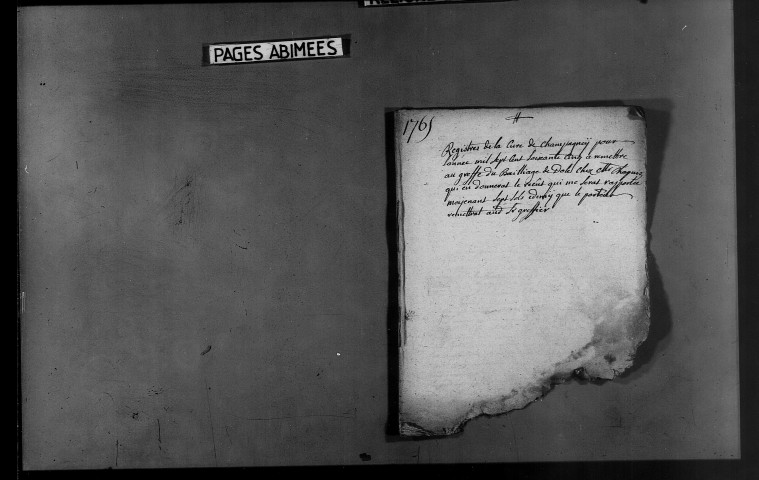 PAGES ABIMEES
1765
Registres de la Cure de Champagney pour
lannee mil sept Cent soixante Cinq a remettre
au greffe du Bailliage de Dole Chez Me
qui en donnerat le recût qui me serat raportez
mojenant sept sols et demÿ que le porteur
remettrat aud Sr greffier